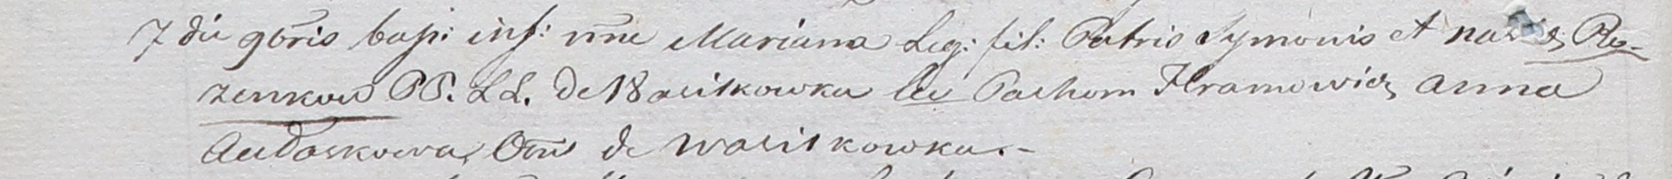 7 dii 9bris bap: inf: nne Mariana Leg: fil: Patris Symonis et Ro-
zenkow PP. LL. de Wasilkowka Lev Pachom Hramowicz Anna
Audaskowa, Om de Wasilkowka.-